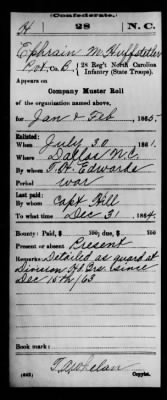 (Confederate.)
H 28 N.C.
Ephraim M. Huffstetler
Pvt, Co. B, 28 Reg't North Carolina
Infantry (State Troops).
Appears on
Company Muster Roll
of the organization named above,
for Jan & Feb, 1865.
Enlisted:
When July 30, 1861.
Where Dallas N.C.
By whom Edwards
Period war
Last paid:
By whom Capt Hill
To what time Dec 31, 1864.
Bounty: Paid $ 100; due $ 100
Present or absent Present
Remarks: Detailed as guard at
Division Hd. Qrs. since
Dec 15th/63
Book mark:
T. A. Whelan
(642) Copyist.